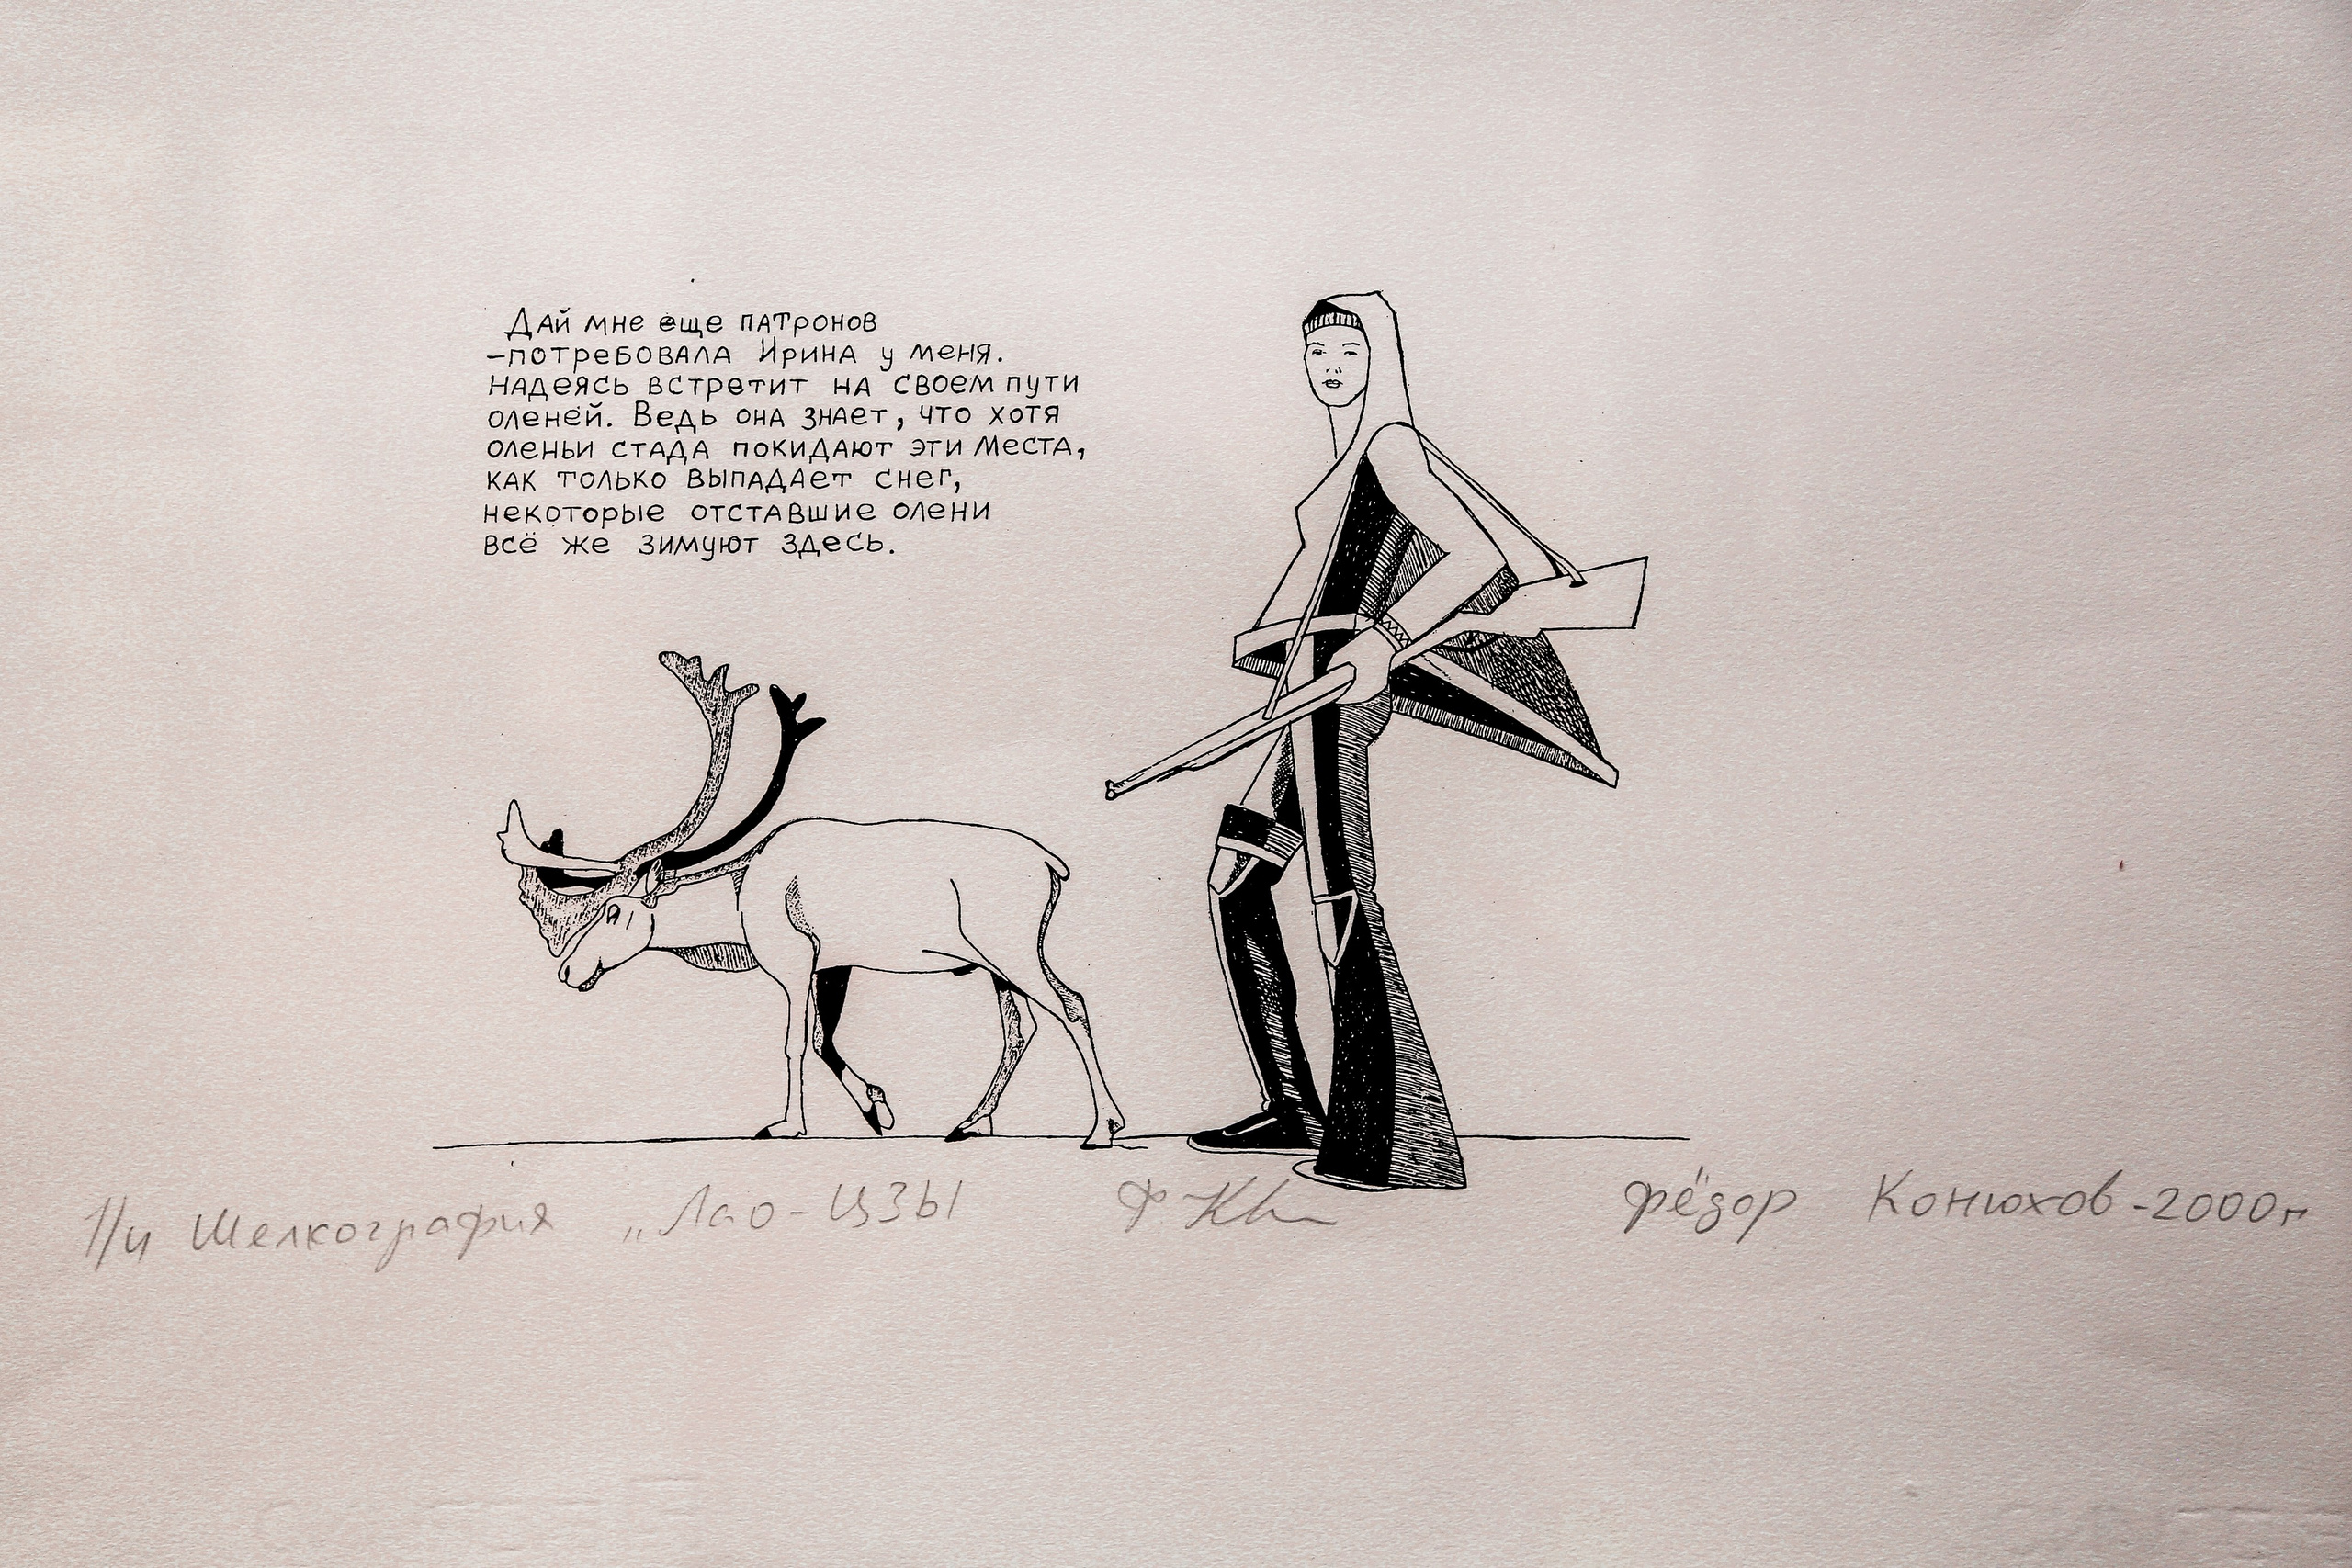 Дай мне еще патронов
-потребовала Ирина у меня.
Надеясь встретит на своем пути
оленей. Ведь она знает, что хотя
оленьи стада покидают эти места,
как только выпадает снег,
некоторые отставшие олени
всё же зимуют здесь.
Шелкография „Лао-Цзы Фёдор Конюхов-2000г